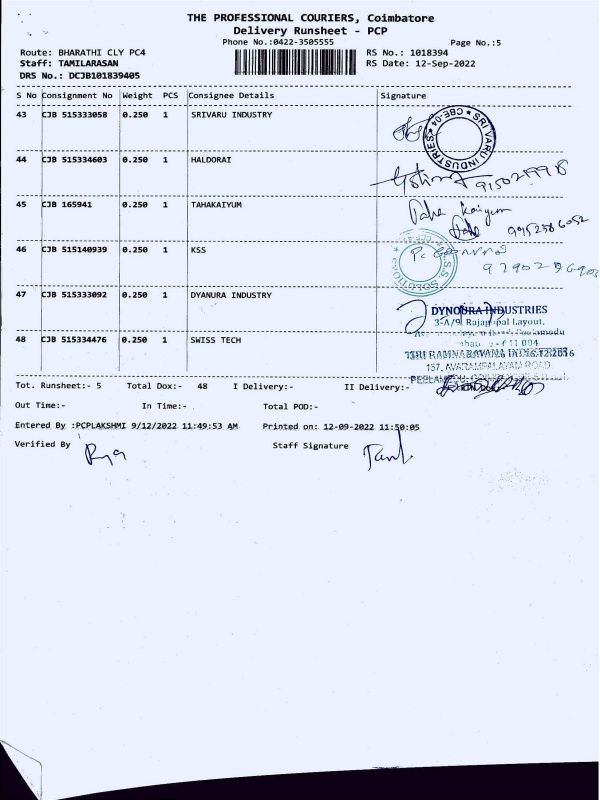 THE PROFESSIONAL COURIERS, Coimbatore
Delivery Runsheet - PCP
Phone No.:0422-3505555 Page No.:5
Route: BHARATHI CLY PC4 RS No.: 1018394
Staff: TAMILARASAN RS Date: 12-Sep-2022
DRS No.: DCJB101839405
S No Consignment No Weight PCS Consignee Details Signature
43 CJB 515333058 0.250 1 SRIVARU INDUSTRY
SRI VARU INDUSTRIES CBE-04
44 CJB 515334603 0.250 1 HALDORAI
45 CJB 165941 0.250 1 TAHAKAIYUM
Taha Kaiyum
Taha 9952586052
46 CJB 515140939 0.250 1 KSS
47 CJB 515333092 0.250 1 DYANURA INDUSTRY
DYNOURA INDUSTRIES
3-A/9, Rajagopal Layout,
48 CJB 515334476 0.250 1 SWISS TECH
157, AVARAMPALAYAM ROAD
Tot. Runsheet:- 5 Total Dox:- 48 I Delivery:- II Delivery:-
Out Time:- In Time:- Total POD:-
Entered By :PCPLAKSHMI 9/12/2022 11:49:53 AM Printed on: 12-09-2022 11:50:05
Verified By Staff Signature